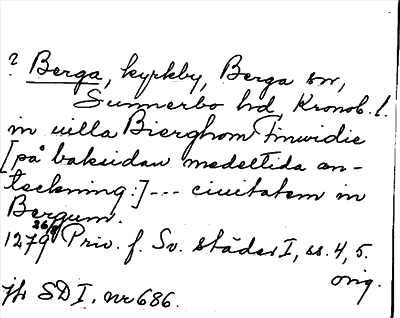 ? Berga, kyrkby, Berga sn,
Sunnerbo hd, Kronob. l.
in uilla Bierghom Finuidie
[på baksidan medeltida an-
teckning:] --- ciuitatem in
Bergum.
1279 26/8 Priv. f. Sv. städer I, ss. 4, 5.
orig.
jfr SD I. nr 686.